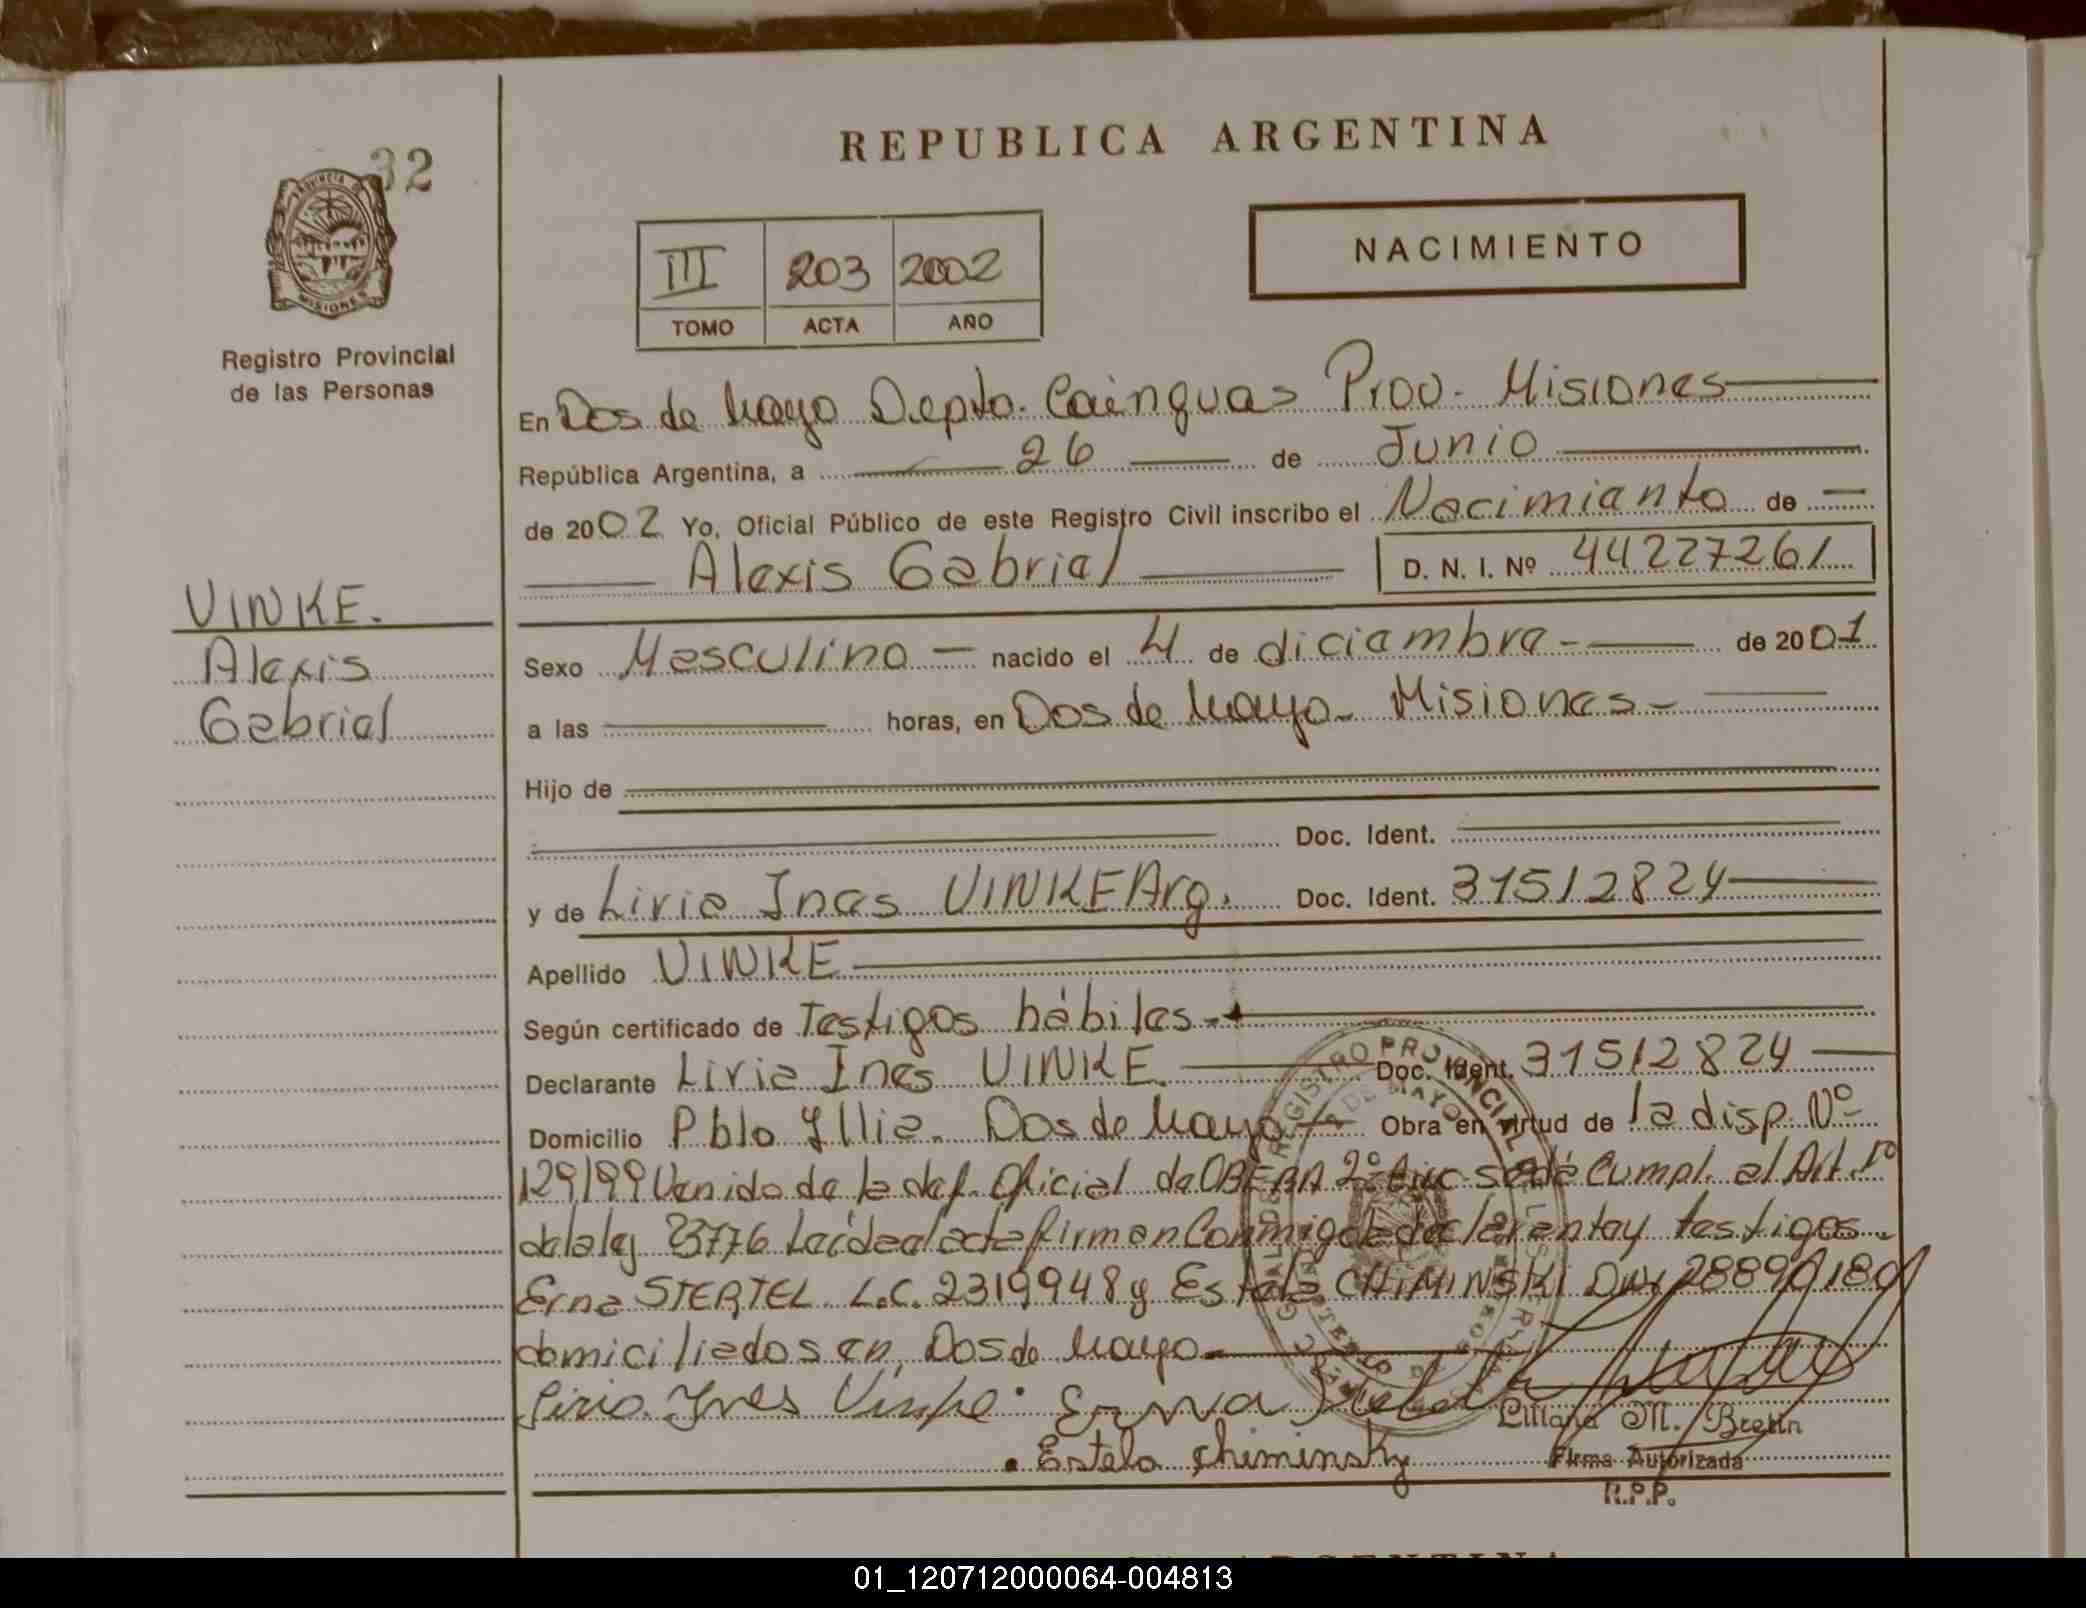 REPUBLICA ARGENTINA
32
PROVINCIA DE
MISIONES
Registro Provincial
de las Personas
III 203 2002
TOMO ACTA AÑO
NACIMIENTO
En Dos de Mayo Depto. Cainguas Prov. Misiones
República Argentina, a 26 de Junio
de 2002 Yo, Oficial Público de este Registro Civil inscribo el Nacimiento de
Alexis Gabriel D. N. I. Nº 44227261
VINKE.
Alexis
Gabriel
Sexo Masculino nacido el 4 de diciembre de 2001
a las horas, en Dos de Mayo Misiones
Hijo de
Doc. Ident.
y de Liria Ines VINKE Arg. Doc. Ident. 31512824
Apellido VINKE
Según certificado de Testigos hábiles
Declarante Liria Ines VINKE. Doc. Ident. 31512824
Domicilio Pblo Yllia. Dos de Mayo Obra en virtud de la disp. Nº
129/99 Venido de la def. Oficial de OBERA 2º se dé Cumpl. al Art. 1º
de la ley 23776 Leída el acta firman Conmigo la declarante y testigos
Erna STERTEL L.C. 2319948 y Estela CHIMINSKI DNI 28890180
domiciliados en Dos de Mayo
Liria Ynes Vinke Erna
Liliana M. Bretin
Estela Chiminsky
Firma Autorizada
R.P.P.
ARGENTINA
01_120712000064-004813